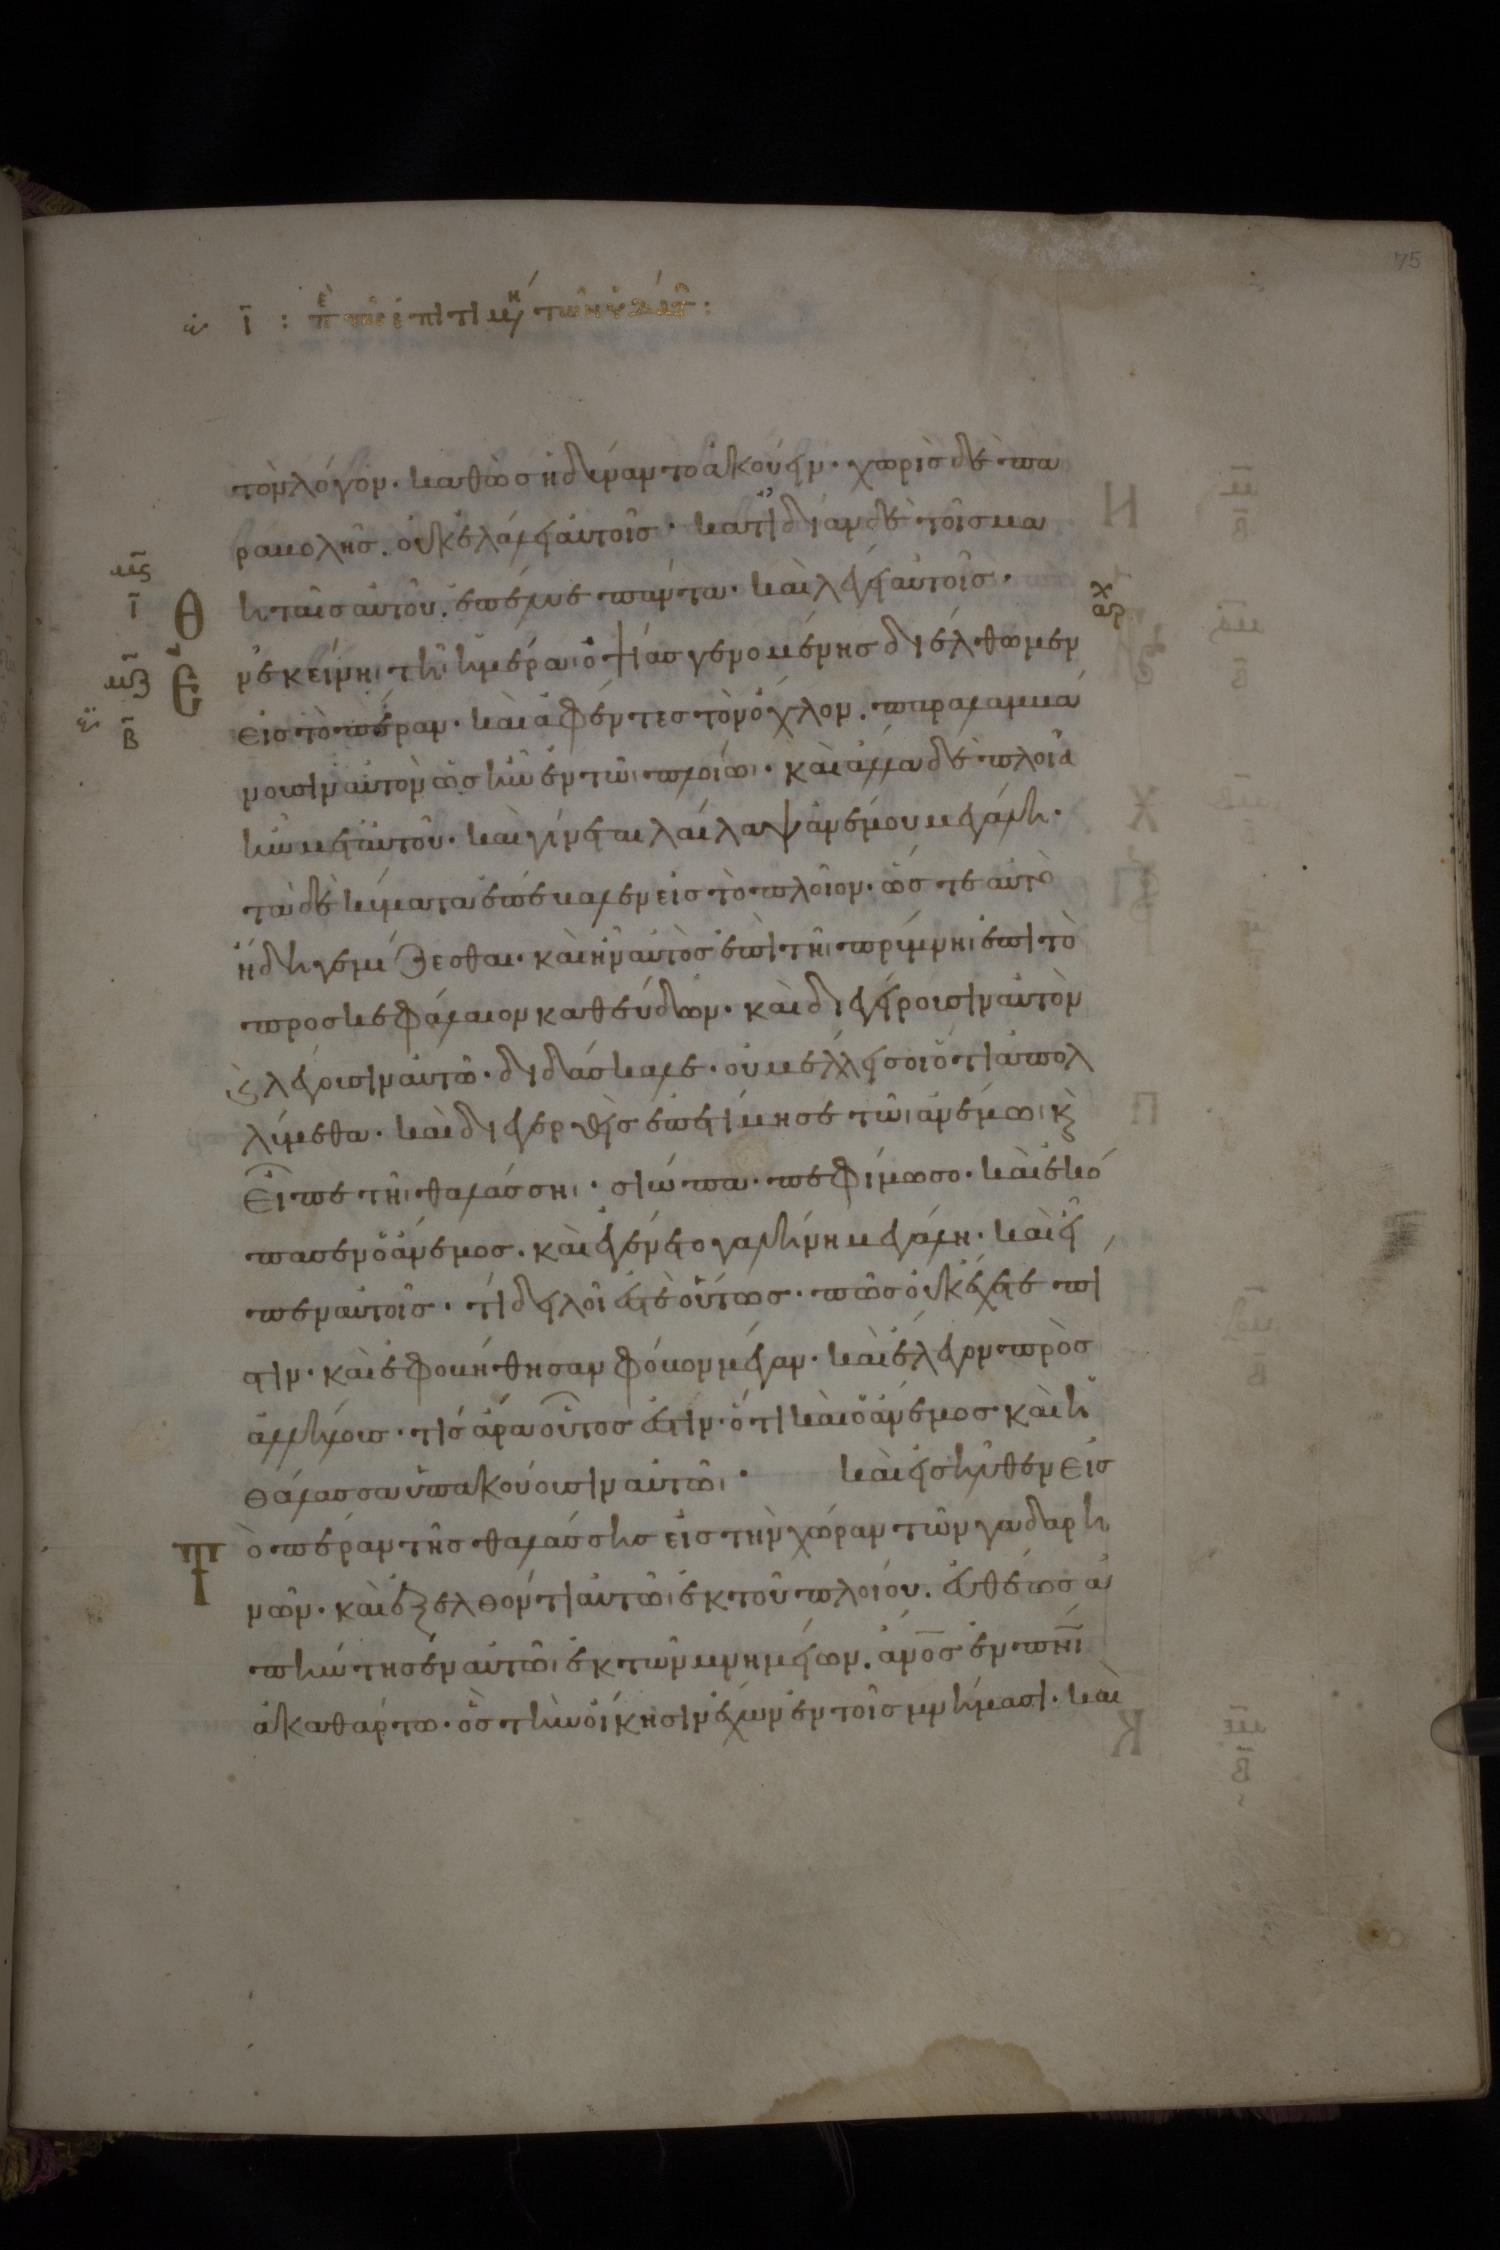 75
ῑ : περὶ τῆς ἐπιτιμή τῶν ὑδάτ :
τὸν λόγον. καθὼσ ἠδύναντο ἀκούειν. χωρὶσ δὲ πα
ραβολῆσ. οὐκ ἐλάλει αὐτοῖσ. κατ ἰδίαν δὲ τοῖσ μα
θηταῖσ αὐτοῦ. ἐπέλυε πάντα. καὶ λέγει αὐτοῖσ.
μ̅ϛ̅
ι̅
αρχ
ν ἐκείνηι τῆι ἡμέραι ὀψίασ γενομένησ διέλθωμεν
μ̅ζ̅
β̅
Ε
εἰσ τὸ πέραν. καὶ ἀφέντεσ τὸν ὄχλον. παραλαμβά
νουσιν αὐτὸν ὡσ ἦν ἐν τῶι πλοίωι. καὶ ἄλλα δὲ πλοῖα
ἦν μετ αὐτοῦ. καὶ γίνεται λαῖλαψ ἀνέμου μεγάλη.
τὰ δὲ κύματα ἐπέβαλεν εἰσ τὸ πλοῖον. ὥστε αὐτὸ
ἤδη γεμίζεσθαι. καὶ ἦν αὐτὸσ ἐπὶ τῆι πρύμνηι ἐπὶ τὸ
προσκεφάλαιον καθεύδων. καὶ διεγείρουσιν αὐτὸν
ϗ λέγουσιν αὐτῶ. διδάσκαλε. οὐ μέλλει σοι ὅτι ἀπολ
λύμεθα. καὶ διεγερθεὶσ ἐπετίμησε τῶι ἀνέμωι ϗ
εἶπε τῆι θαλάσσηι. σιώπα. πεφίμωσο. καὶ ἐκό
πασεν ὁ ἄνεμοσ. καὶ ἐγένετο γαλήνη μεγάλη. καὶ εἶ
πεν αὐτοῖσ. τί δειλοί ἐστε οὕτωσ. πῶσ οὐκ ἔχετε πί
στιν. καὶ ἐφοβήθησαν φόβον μέγαν. καὶ ἔλεγον πρὸσ
ἀλλήλουσ. τίσ ἄρα οὗτοσ ἐστιν. ὅτι καὶ ὁ ἄνεμοσ καὶ ἡ
θάλασσα ὑπακούουσιν αὐτῶι. καὶ εἰσῆλθεν εἰσ
Τ
ὸ πέραν τῆσ θαλάσσησ εἰσ τὴν χώραν τῶν γαδαρη
νῶν. καὶ ἐξελθόντι αὐτῶι ἐκ τοῦ πλοίου. εὐθέωσ ἀ
πήντησεν αὐτῶι ἐκ τῶν μνημείων. ἄνο̅σ ἐν πνι̅
ἀκαθάρτω. ὃσ τὴν οἴκησιν εἶχεν ἐν τοῖσ μνήμασι. καὶ